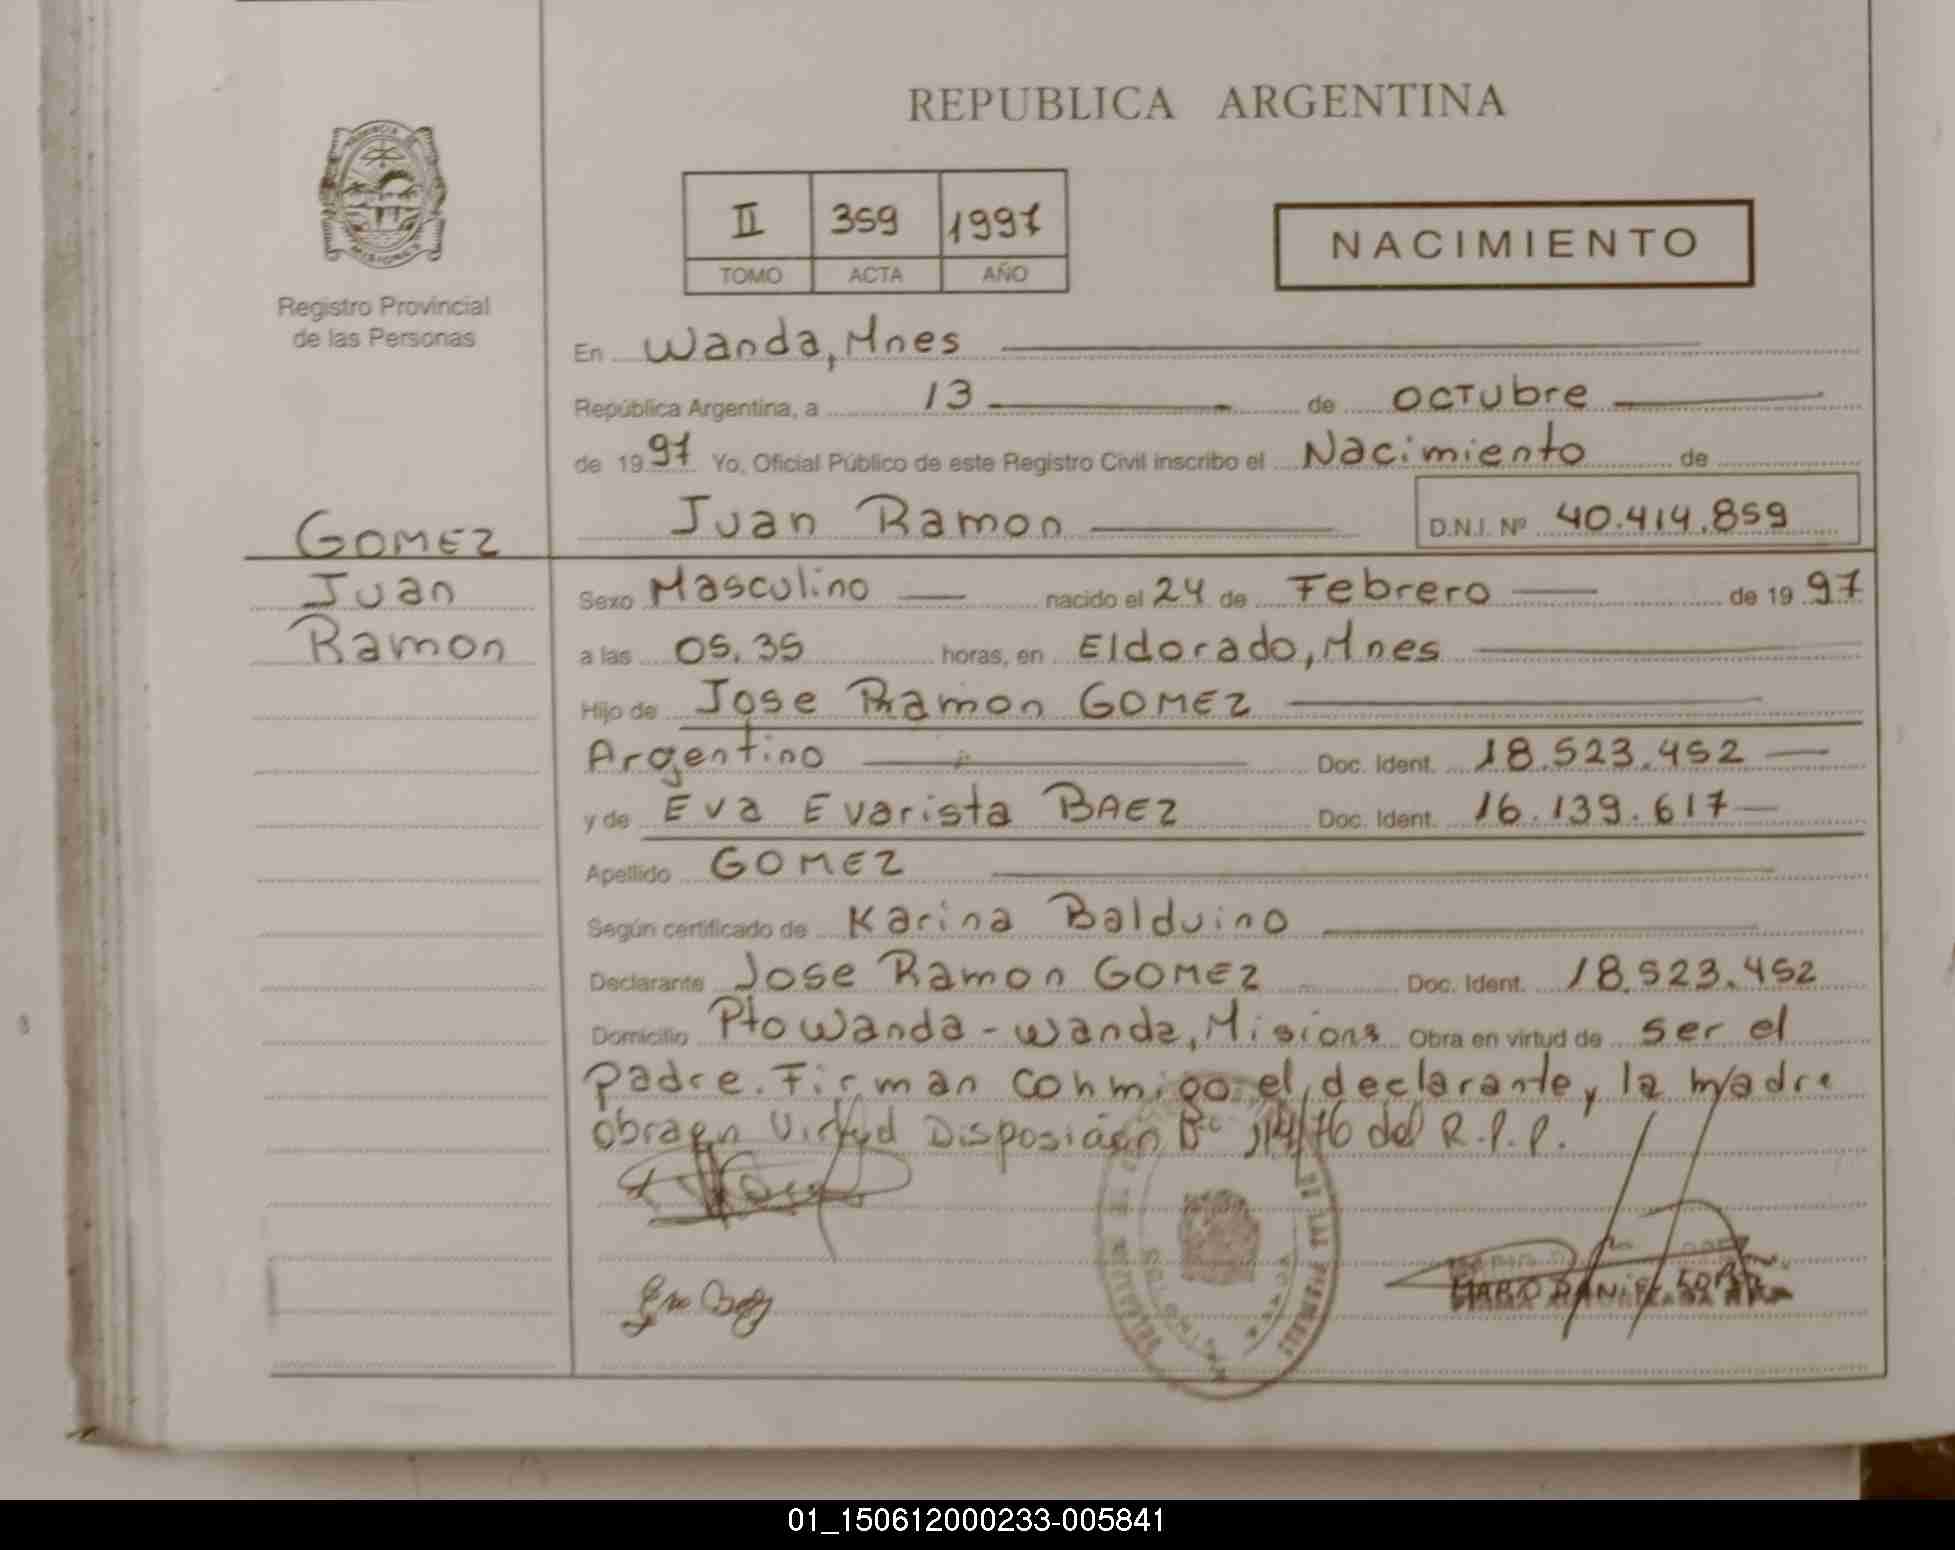 REPUBLICA ARGENTINA
II 359 1997
TOMO ACTA AÑO
NACIMIENTO
Registro Provincial
de las Personas
En Wanda, Mnes
República Argentina, a 13 de octubre
de 1997 Yo, Oficial Público de este Registro Civil inscribo el Nacimiento de
Juan Ramon D.N.I. Nº 40.414.859
GOMEZ
Juan
Ramon
Sexo Masculino nacido el 24 de Febrero de 1997
a las 05.35 horas, en Eldorado, Mnes
Hijo de Jose Ramon GOMEZ
Argentino Doc. Ident. 18.523.452
y de Eva Evarista BAEZ Doc. Ident. 16.139.617
Apellido GOMEZ
Según certificado de Karina Balduino
Declarante Jose Ramon GOMEZ Doc. Ident. 18.523.452
Domicilio Pto Wanda - Wanda, Misions Obra en virtud de ser el
padre. Firman conmigo el declarante y la madre
obra en Virtud Disposición 114/76 del R.P.P.
01_150612000233-005841